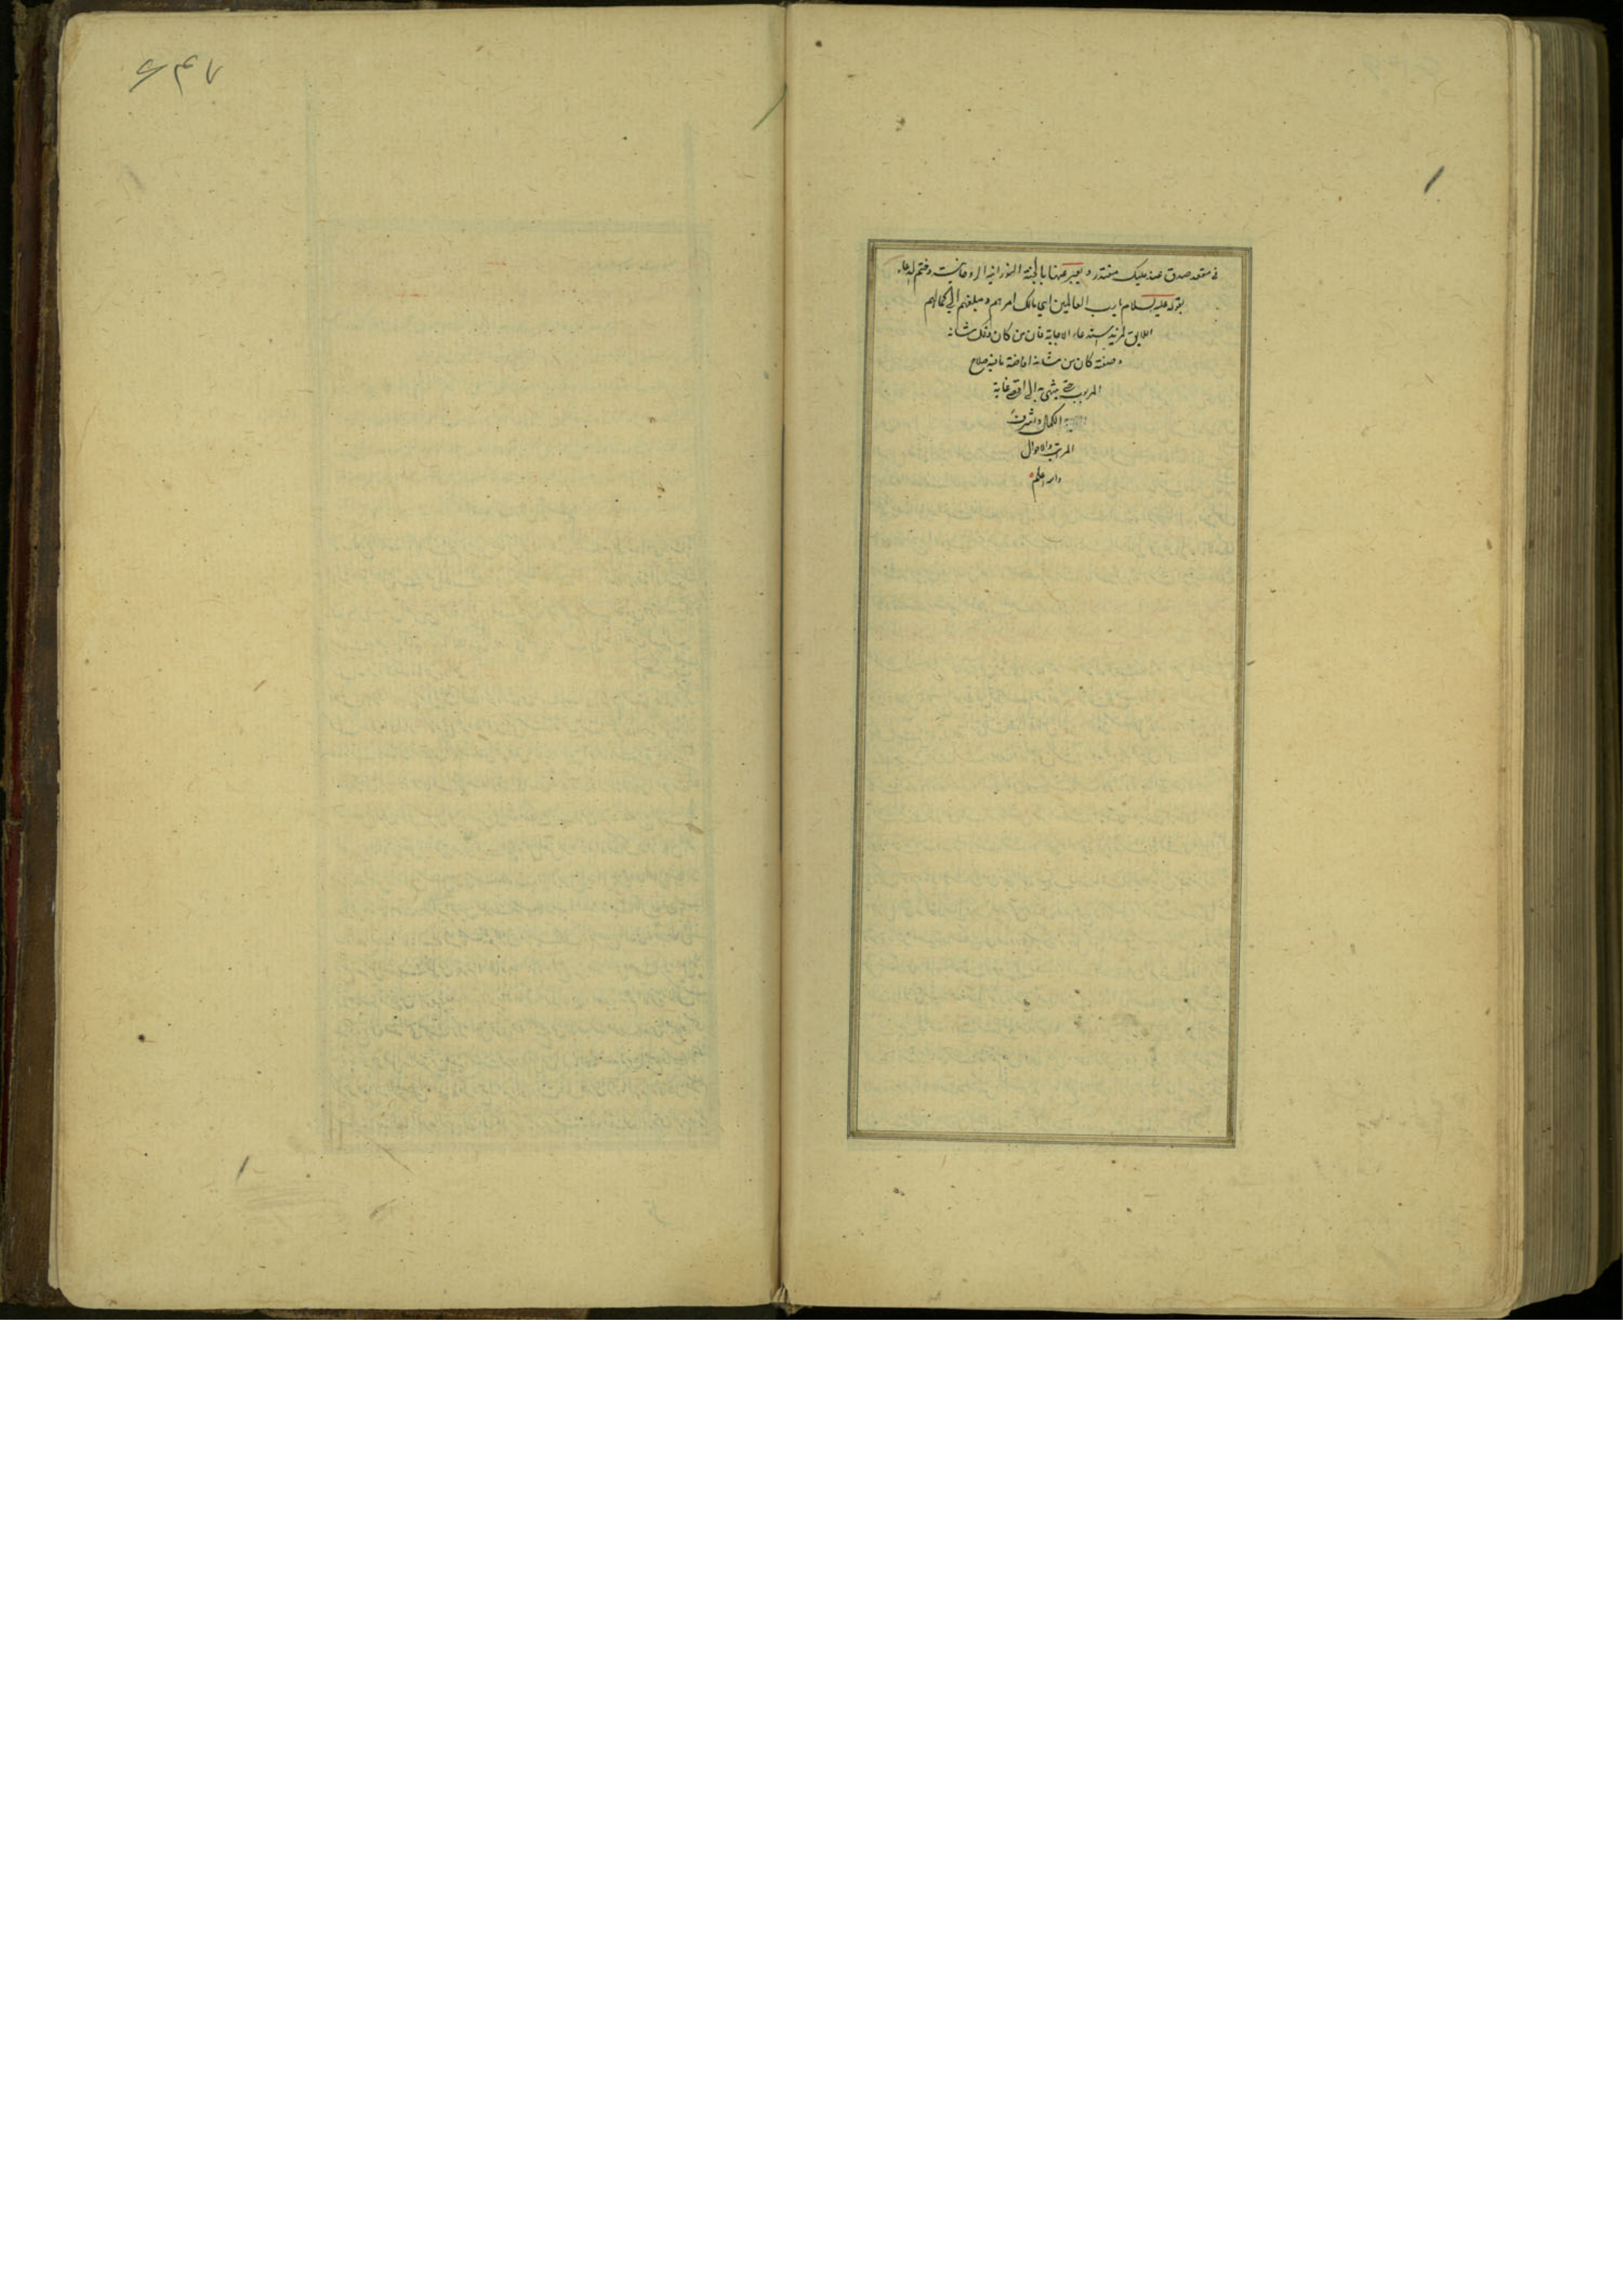 في مقعد صدق عند مليك مقتدر ويعبر عنها بالجنة النورانية الروحانية وختم الدعاء
بقوله عليه السلام يا رب العالمين اي مالك امرهم ومبلغهم الى كمالهم
اللايق لمزيد استدعاء الاجابة فان من كان ذلك شانه
وصفته كان من شانه افاضة ما فيه صلاح
المربوب حتى ينتهي به الى اقصى غاية
الكمال واشرف
المراتب والاحوال
والله اعلم